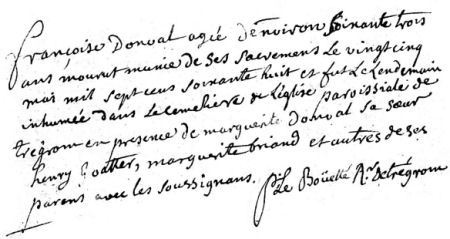 françoise Donval agée d'environ soixante trois
ans mourut munie de ses sacremens Le vingt cinq
mai mil sept cens soixante huit et fut Le Lendemain
inhumée dans Le cemetiere de L'église paroissiale de
trégrom en presence de marguerite donval sa sœur
henry goatter, marguerite briand et autres de ses
parens avec les soussignans. Le Boüetté Rr. de trégrom